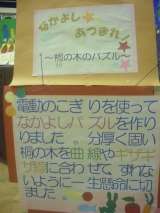 なかよし
あつまれ!
~桐の木のパズル~
電動のこぎりを使って
なかよしパズルを作り
ました。分厚く固い
桐の木を曲線やギザギ
ザ線に合わせて ずれな
いように一生懸命に切
りました